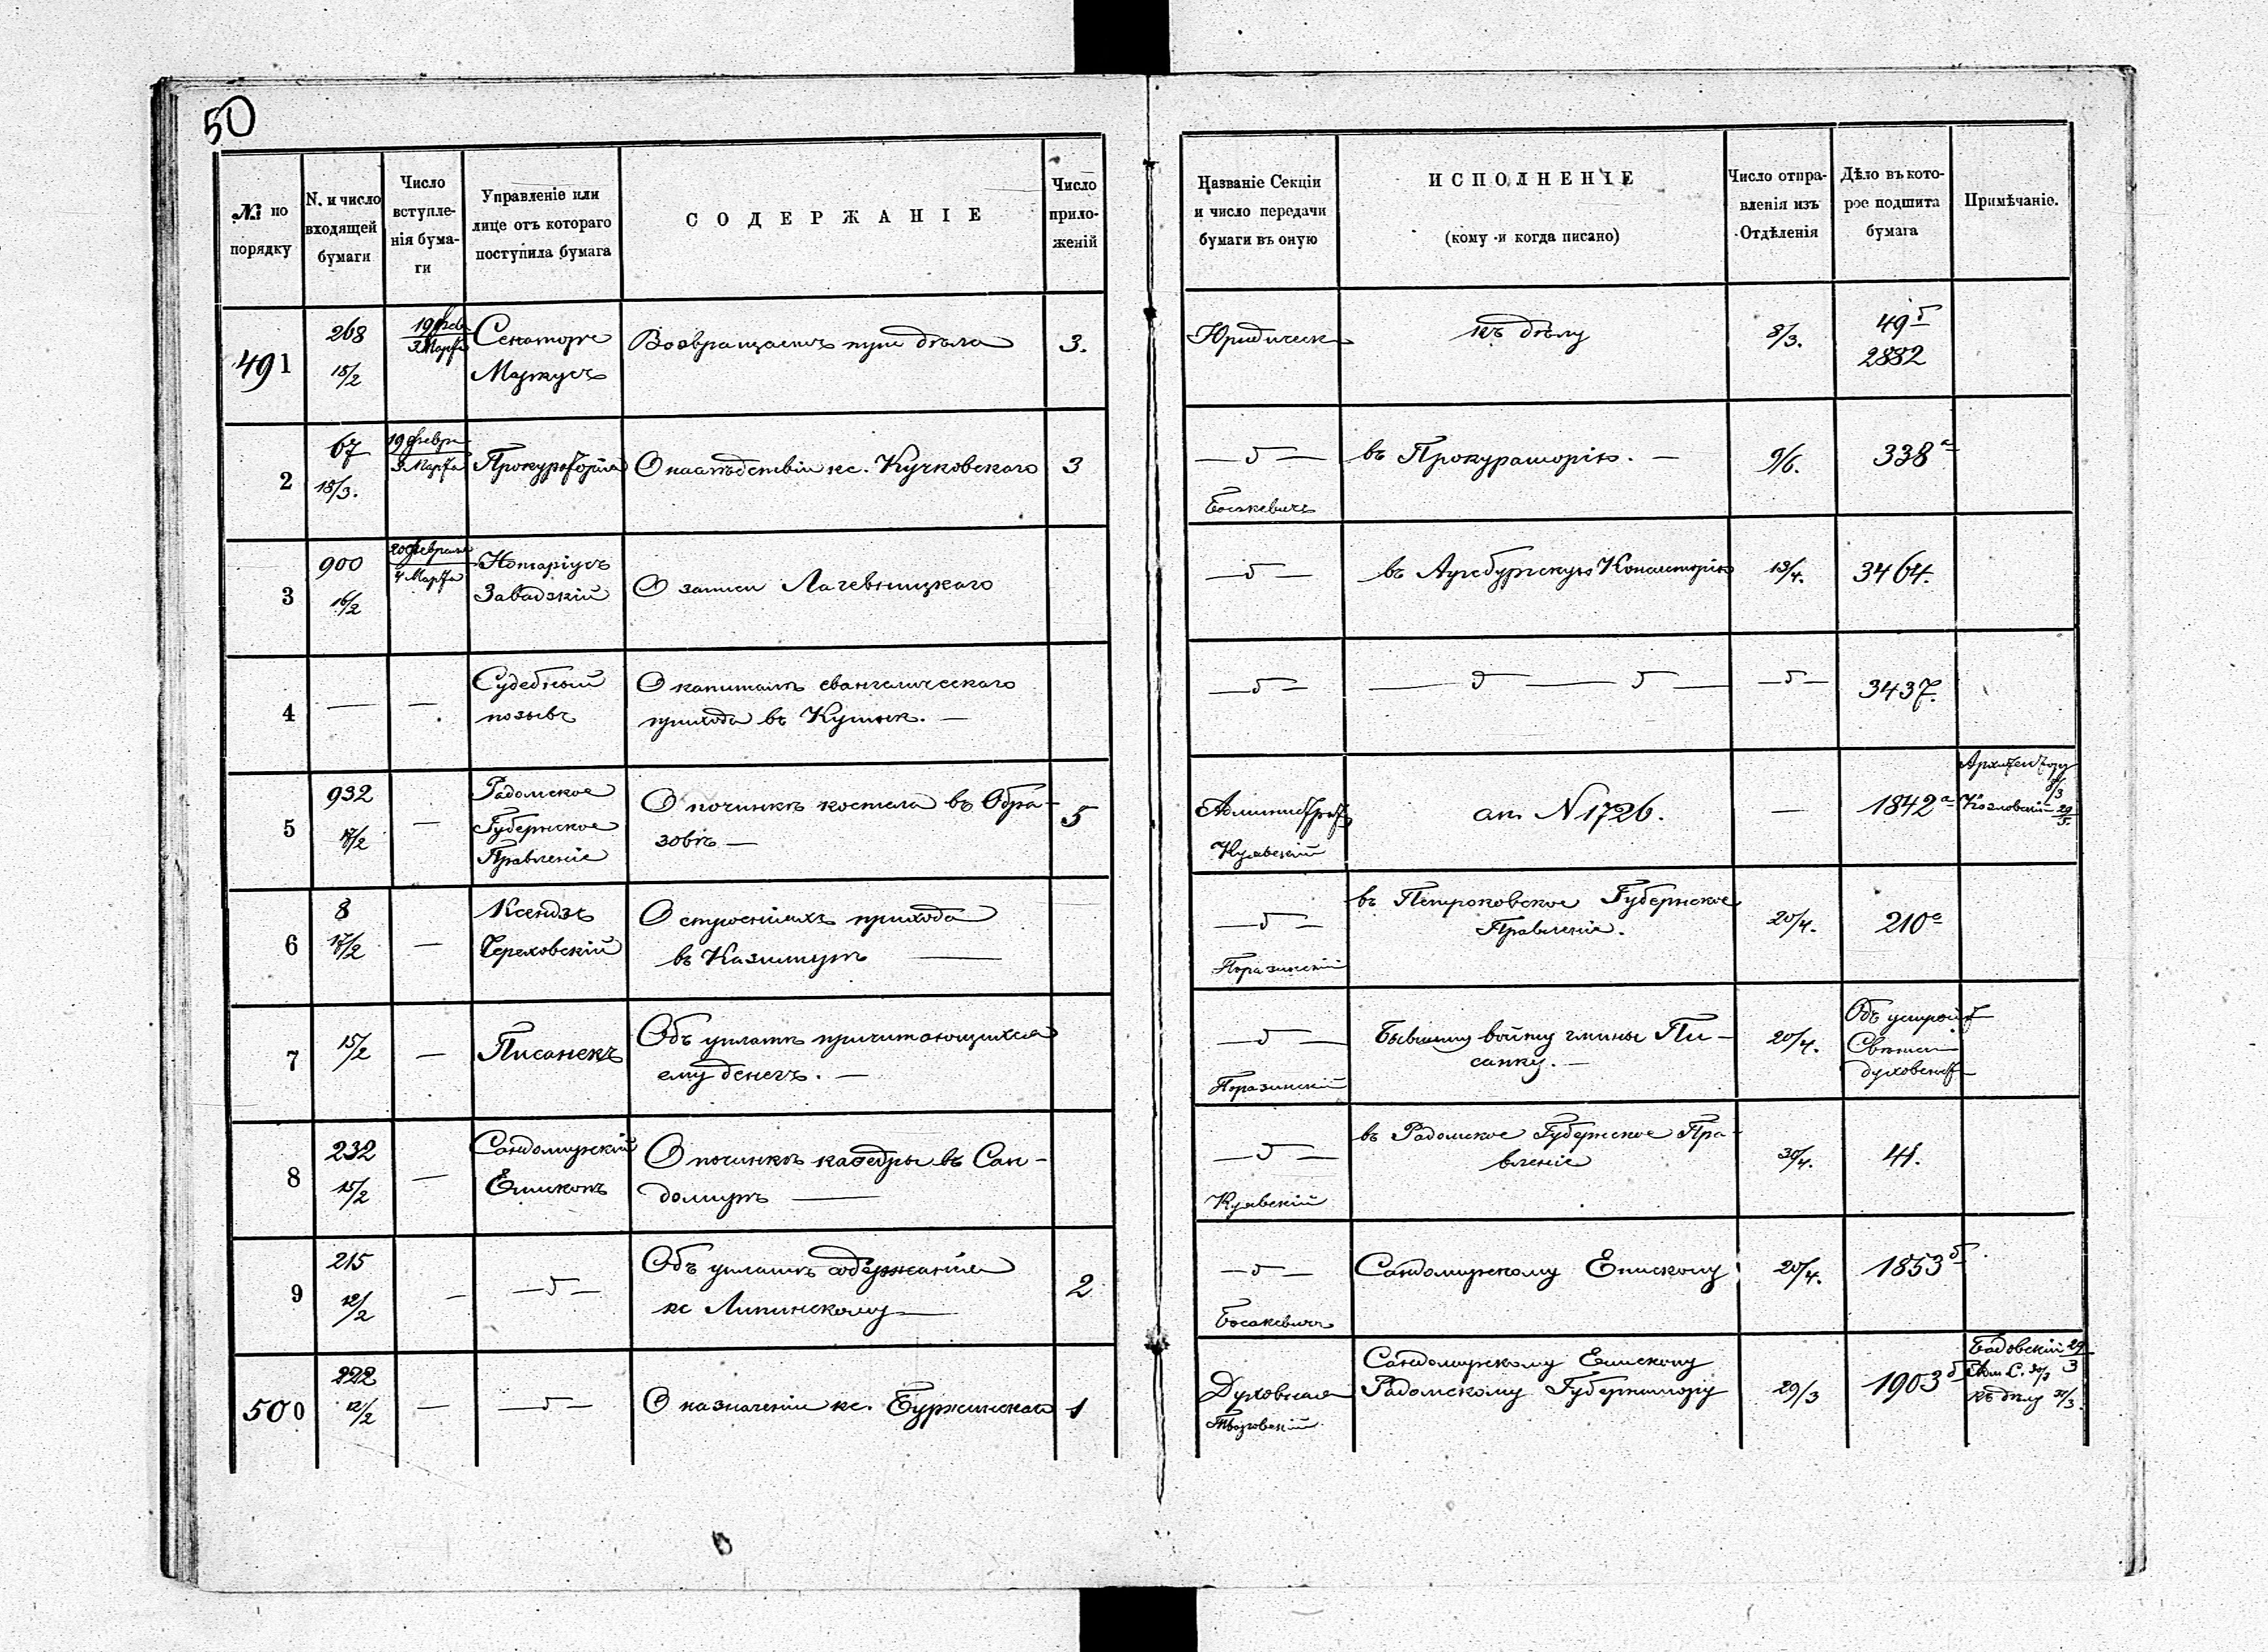 50
№ по порядку
N. и число входящей бумаги
Число вступленія бумаги
Управленіе или лице отъ котораго поступила бумага
СОДЕРЖАНІЕ
Число приложеній
Названіе Секціи и число передачи бумаги въ оную
ИСПОЛНЕНІЕ
(кому и когда писано)
Число отправленія изъ Отдѣленія
Дѣло въ которое подшита бумага
Примѣчаніе.
491
268
18/2
19 Фев.
3 Марта
Сенаторъ
Маркусъ
Возвращаетъ при дѣла
3.
Юридическ
къ дѣлу
8/3.
49 б
2882
2
67
18/3.
19 Февра
3 Марта
Прокураторія
О наслѣдствіи кс. Кучковскаго
3
— б —
въ Прокураторію. —
9/6.
338 а
3
900
16/2
20 Февраля
4 Марта
Нотаріусъ
Завадзкій
О записи Лачевницкаго
— б —
въ Аугсбургскую Консисторію
13/4.
3464.
4
—
—
Судебный
позывъ
О капиталѣ евангелическаго
прихода въ Кутнѣ. —
— б —
— б — б —
— б —
3437.
5
932
17/2
—
Радомское
Губернское
Правленіе
О починкѣ костела въ Обра-
зовѣ —
5
Администрат
Куявскій
ап. N 1726.
—
1842 а
Архитектору
8/3
Козловскій 29/5.
6
8
17/2
—
Ксендзъ
Череховскій
О строеніяхъ прихода
въ Казимирѣ —
— б —
Поразинскій
въ Петроковское Губернское
Правленіе.
20/4.
210 е
7
15/2
—
Писанекъ
Объ уплатѣ причитающихся
ему денегъ. —
— б —
Поразинскій
Бывшему войту гмины Пи-
санку. —
20/4.
Объ устройст
Свѣтск
духовенст
8
232
15/2
—
Сандомирскій
Епископъ
О починкѣ каѳедры въ Сан-
домирѣ —
— б —
Куявскій
въ Радомское Губернское Пра-
вленіе
30/4.
41.
9
215
12/2
—
— б —
Объ уплатѣ содержанія
кс Липинскому —
2
— б —
Босакевичъ
Сандомирскому Епископу
20/4.
1853 б
500
222
12/2
—
— б —
О назначеніи кс. Буржинскаго
1
Духовная
Творовскій
Сандомирскому Епископу
Радомскому Губернатору
29/3
1903 б
Бадовскій 29/3
къ дѣлу 31/3.